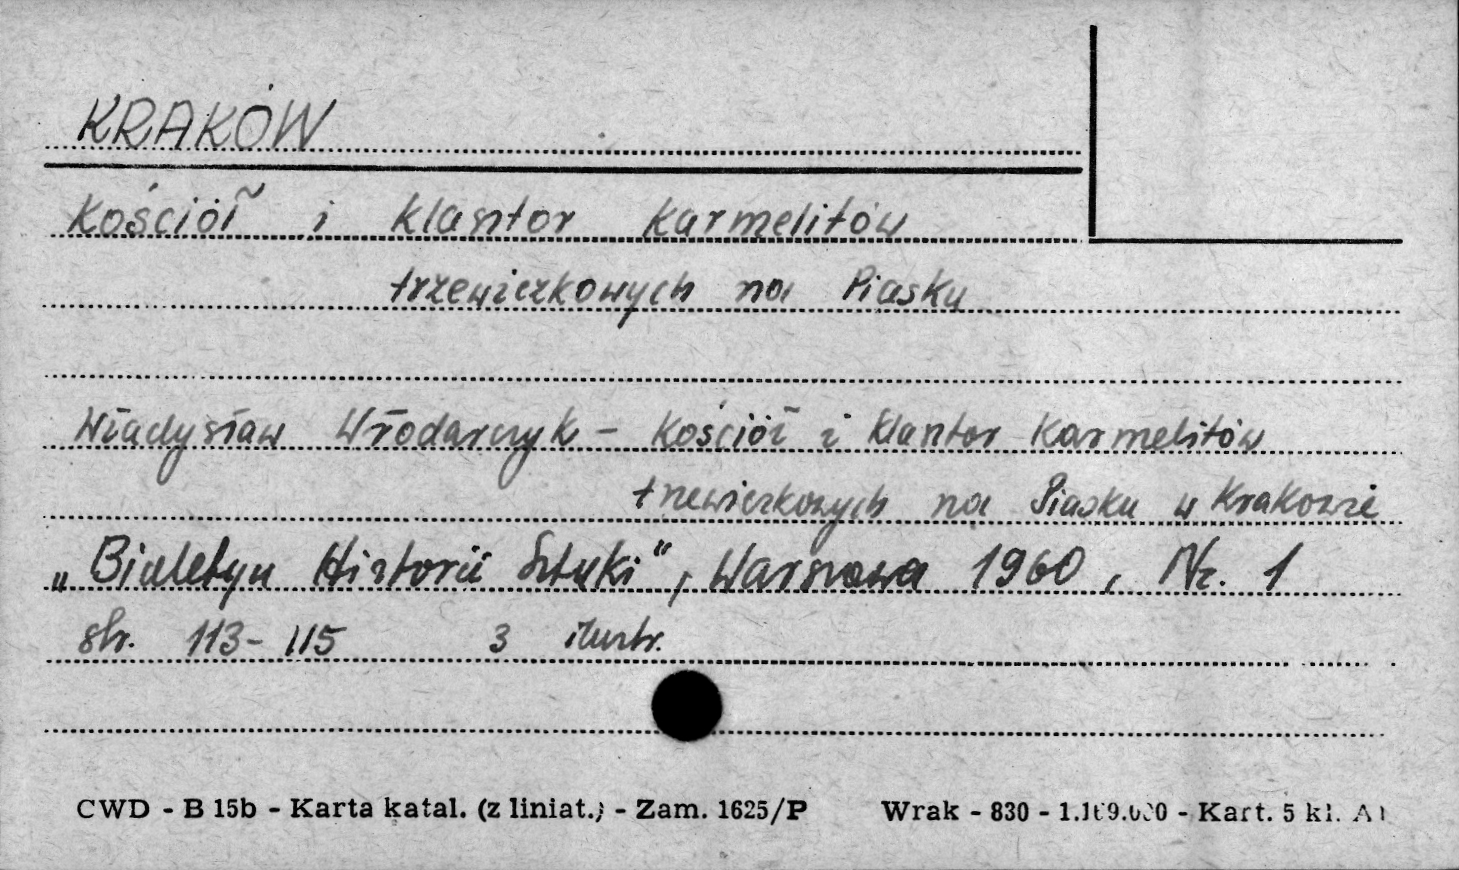 KRAKÓW
Kościół i klasztor Karmelitów
trzewiczkowych na Piasku
Władysław Włodarczyk – Kościół i klasztor Karmelitów
trzewiczkowych na Piasku w Krakowie
„Biuletyn Historii Sztuki”, Warszawa 1960, Nr. 1
str. 113-115 3 ilustr.
CWD - B 15b - Karta katal. (z liniat.) - Zam. 1625/P Wrak - 830 - - Kart. 5 kl.